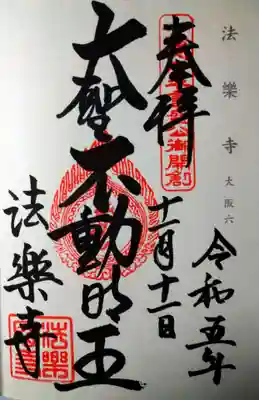 法樂寺 大阪六
令和五年
十一月十一日
奉拝
大聖不動明王
法樂寺